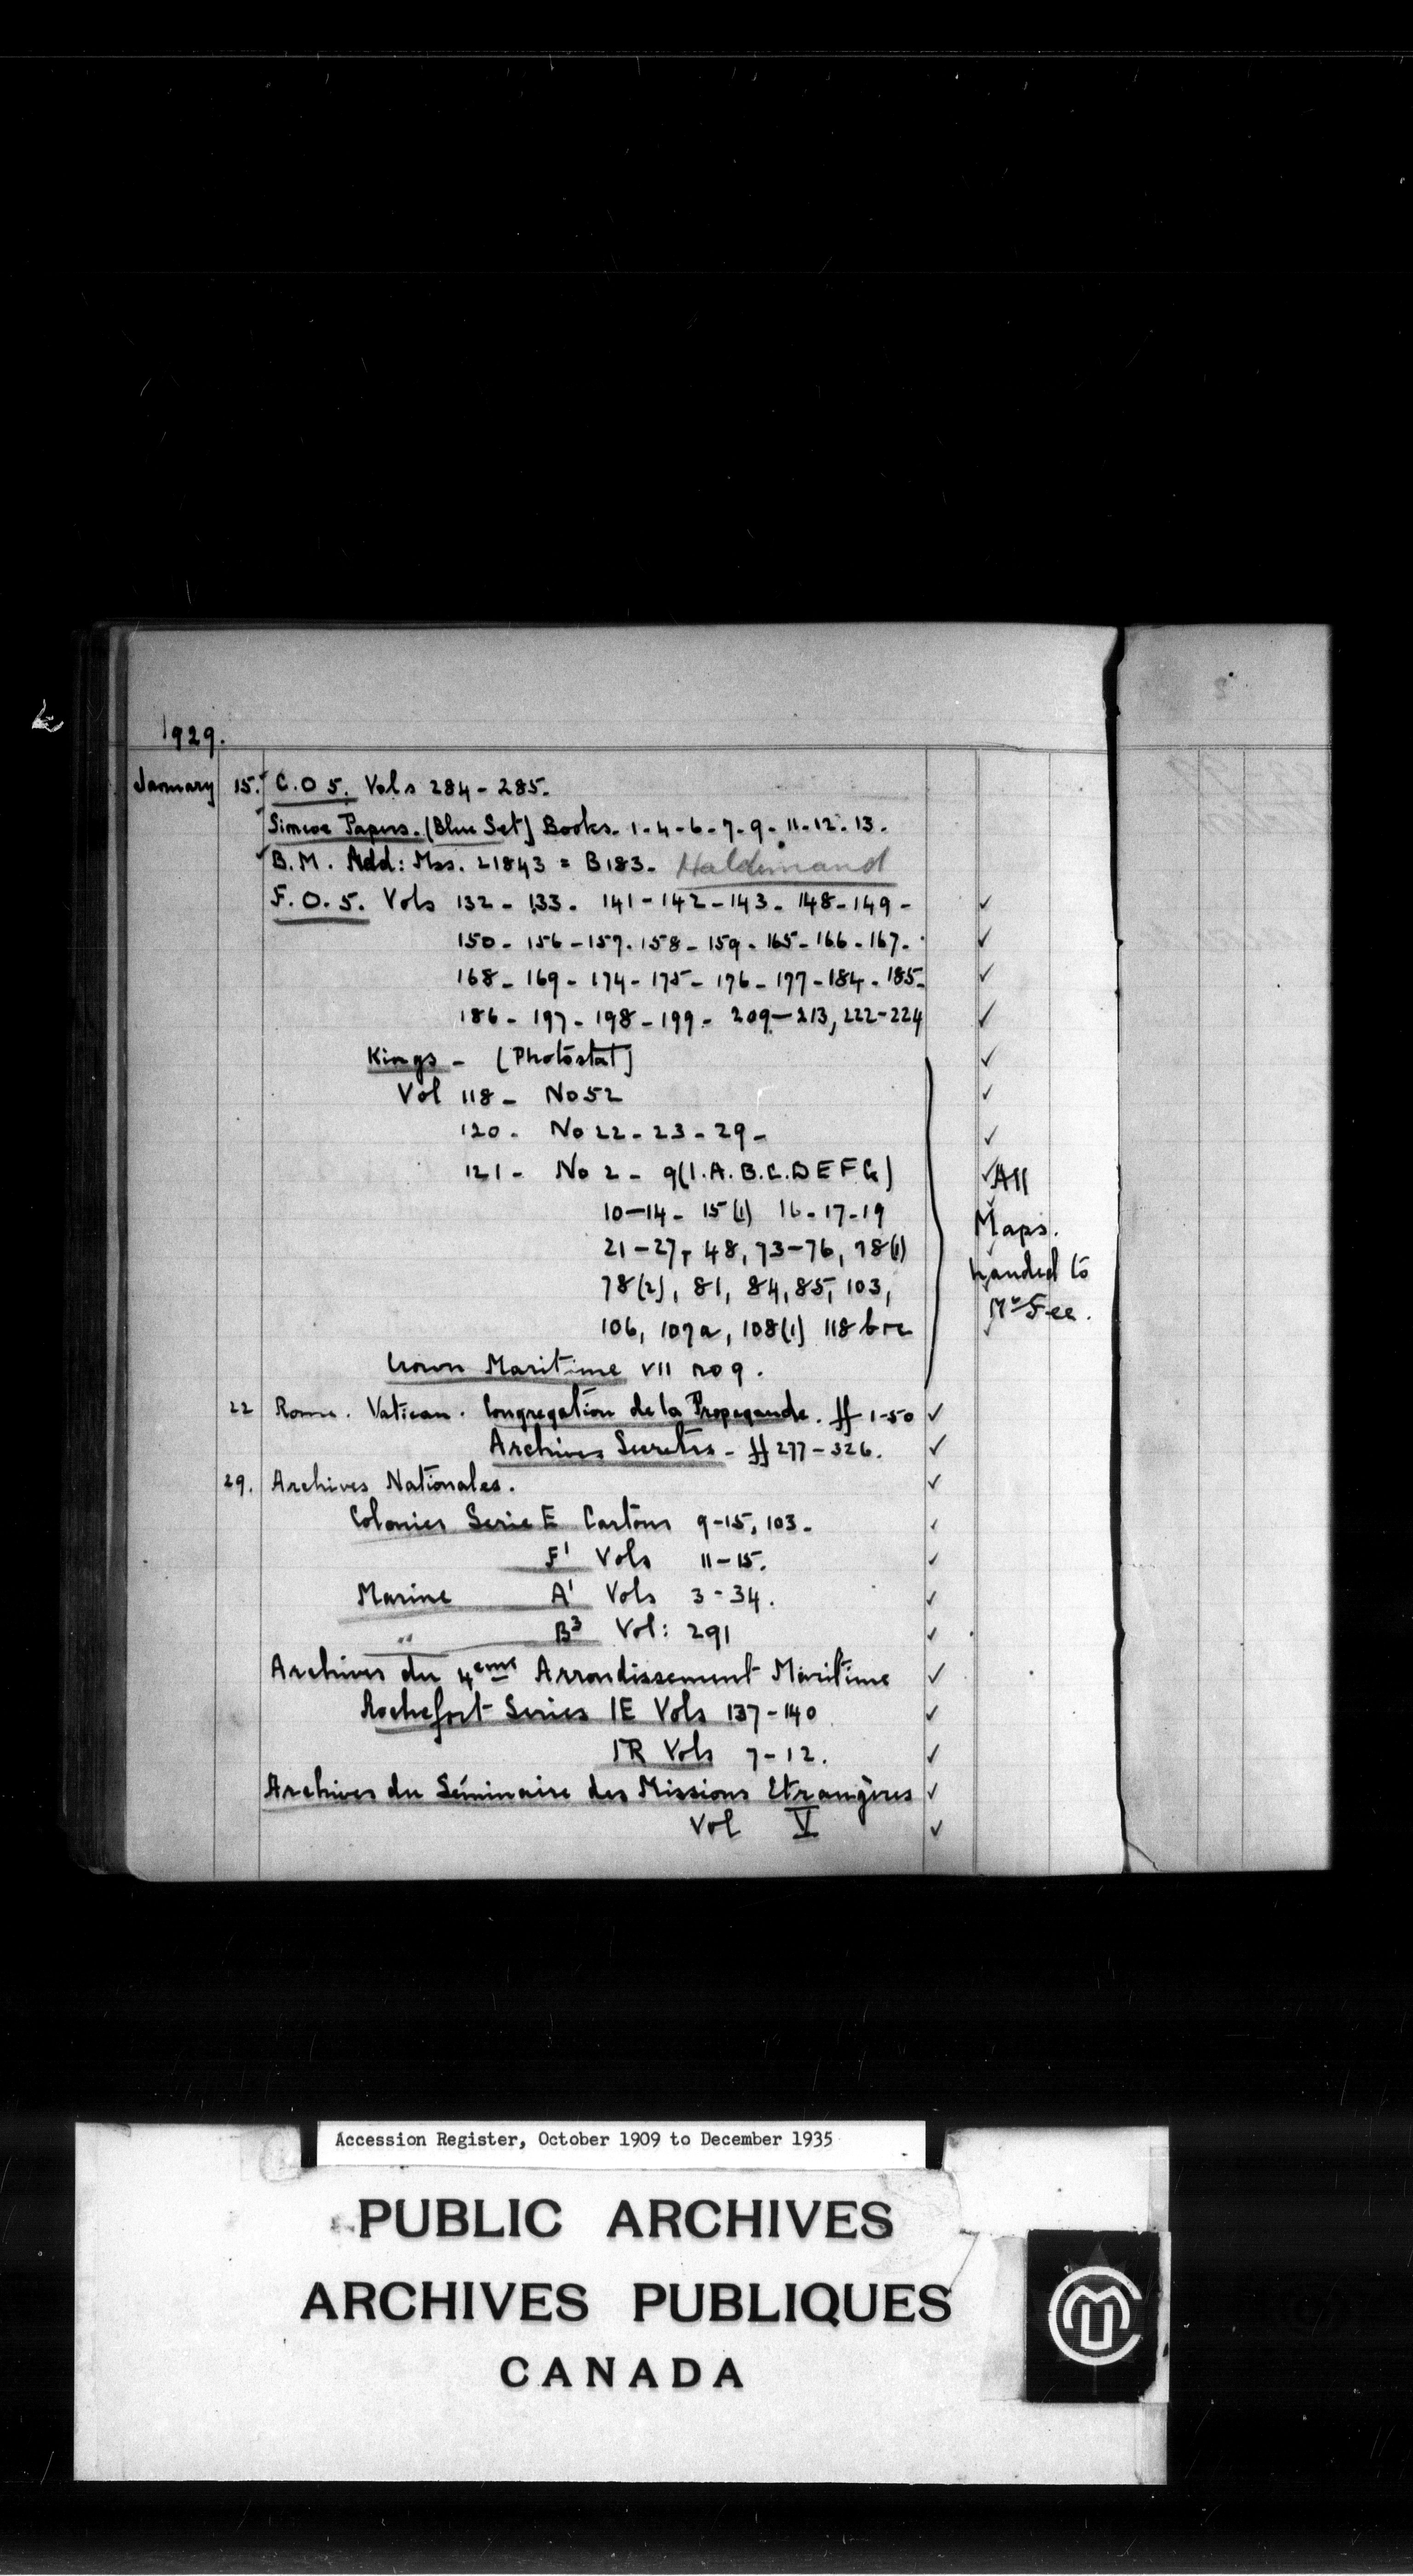 1929.
January 15. C.O 5. Vols 284 - 285.
Simcoe Papers. (Blue Set) Books. 1-4-6-7-9-11-12-13.
B.M. Add: Mss. 21843 = B183. Haldimand
F.O.5. Vols 132 - 133. 141-142-143-148-149-
150-156-157-158-159-165-166-167-
168-169-174-175-176-177-184-185-
186-197-198-199-209-213, 222-224
Kings - (Photostat)
Vol 118 - No 52
120 - No 22-23-29-
121 - No 2 - 9(1.A.B.C.D E F G)
10-14- 15(1) 16-17-19
21-27, 48, 73-76, 78(1)
78(2), 81, 84, 85, 103,
106, 107a, 108(1) 118
Crown Maritime VII no 9.
All
Maps.
handed to
Mr Fee.
22 Rome. Vatican. Congregation de la Propagande. ff 1-50
Archives Secretes - ff 277-326.
29. Archives Nationales.
Colonies Serie E Cartons 9-15, 103.
F1 Vols 11-15.
Marine A1 Vols 3-34.
" B3 Vol: 291
Archives du 4eme Arrondissement Maritime
Rochefort Series IE Vols 137-140
IR Vols 7-12.
Archives du Séminaire des Missions Etrangères
Vol V
Accession Register, October 1909 to December 1935
PUBLIC ARCHIVES
ARCHIVES PUBLIQUES
CANADA